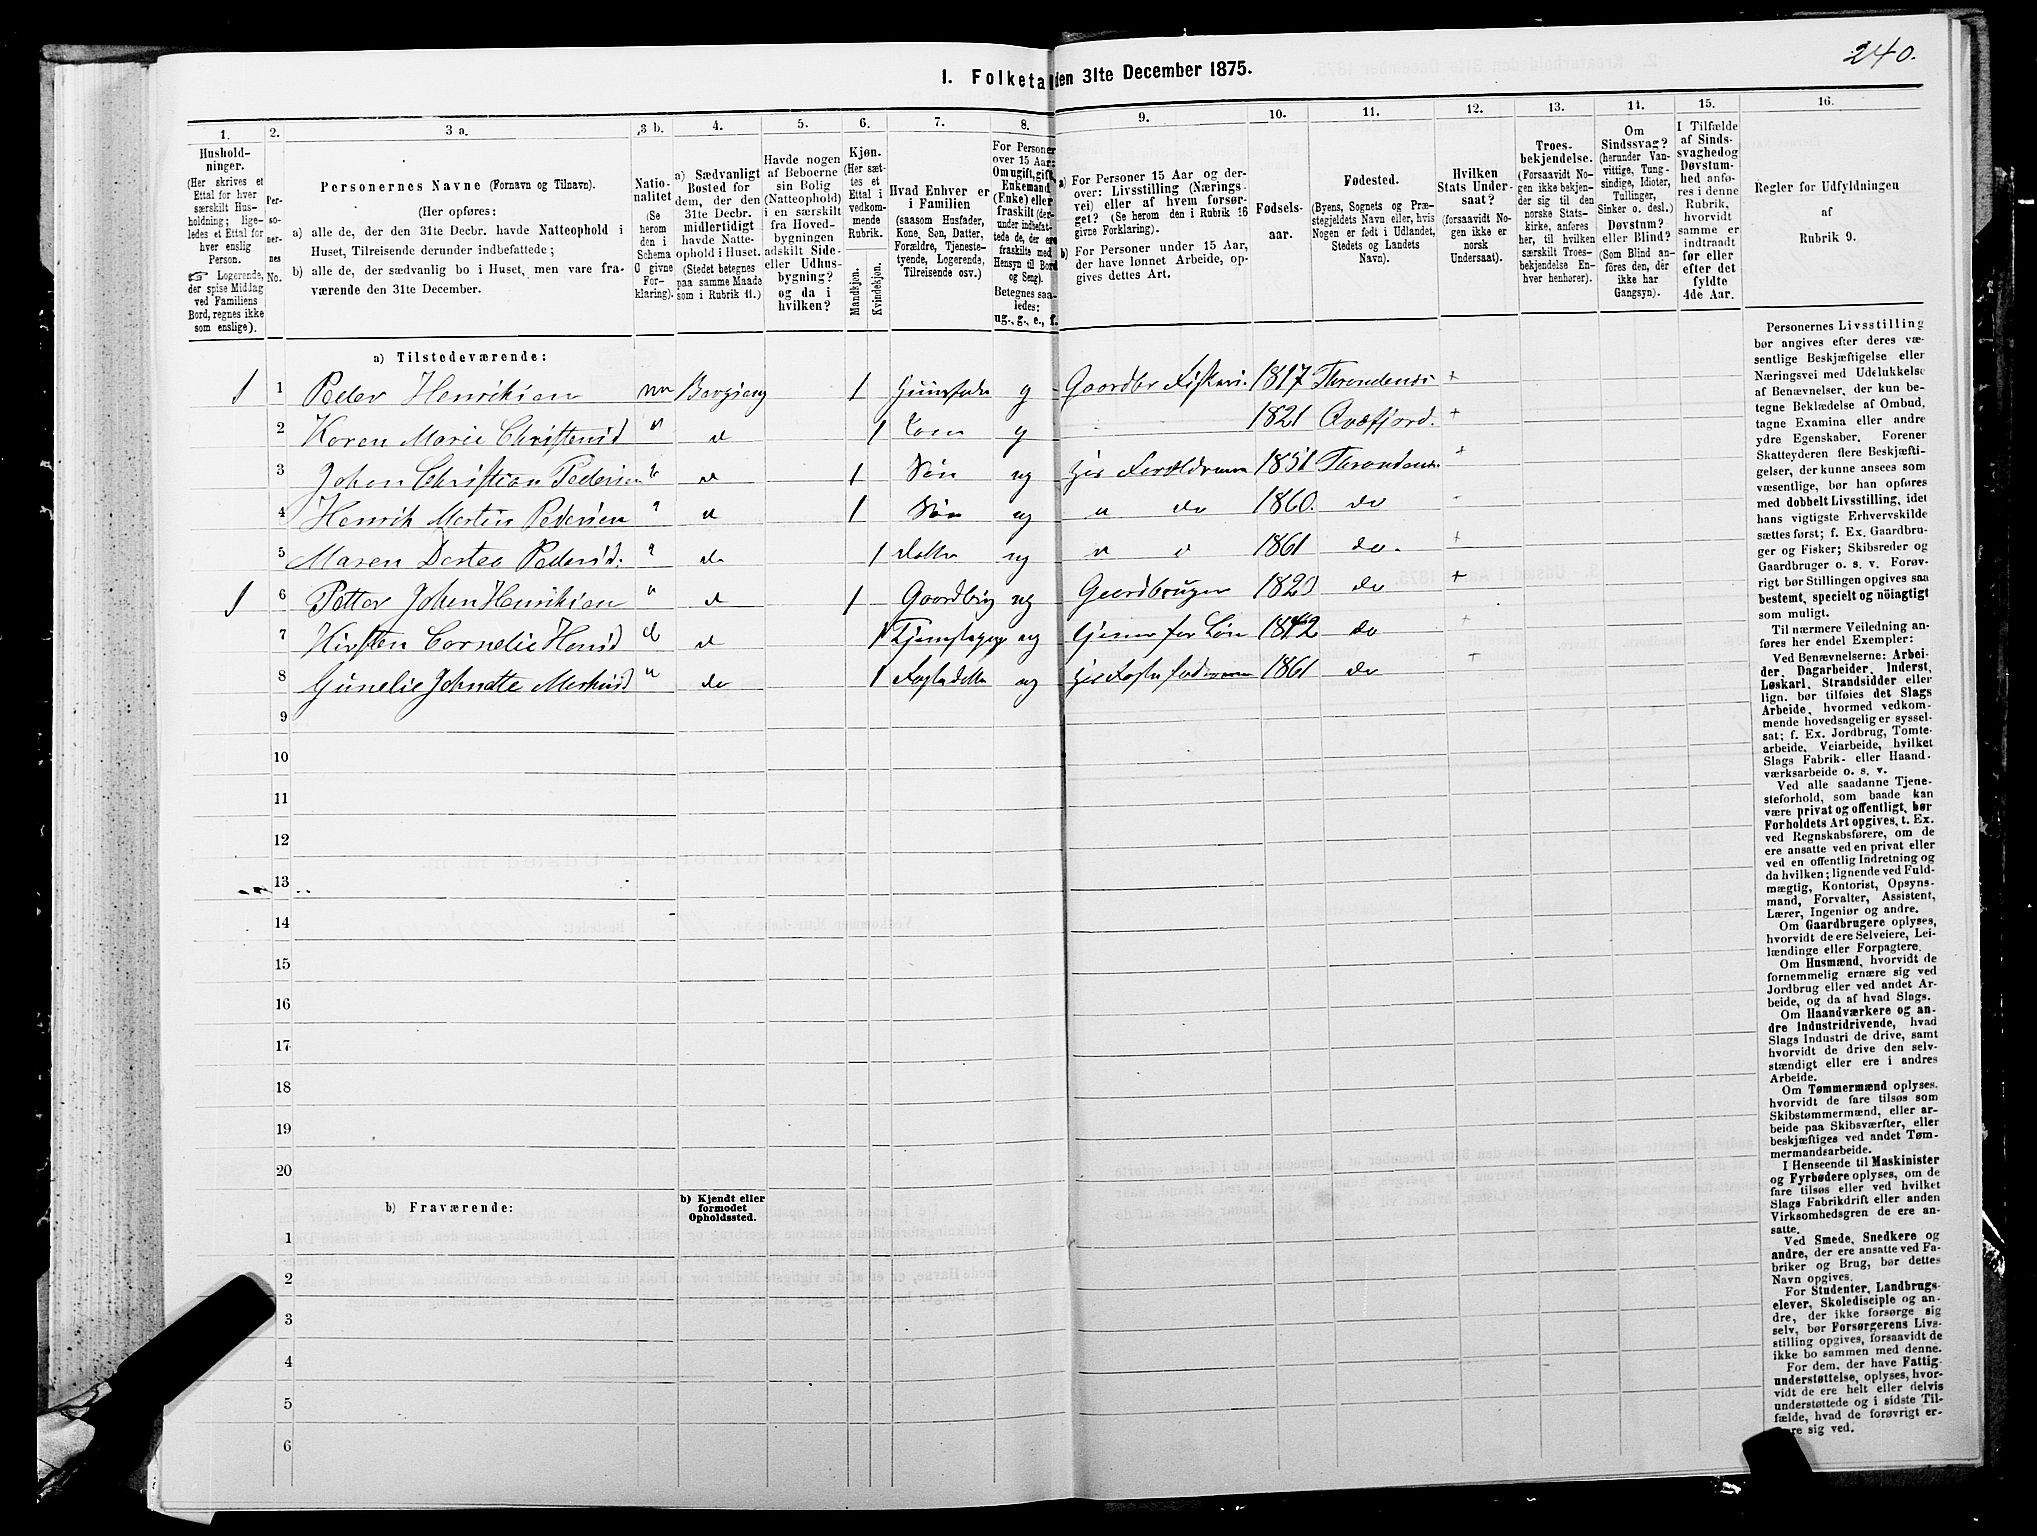 240.
I. Folketal den 31te December 1875.
1. 2. 3 a. 3 b. 4. 5. 6. 7. 8. 9. 10. 11. 12. 13. 14. 15. 16.
Hushold-
ninger.
(Her skrives et
Ettal for hver
særskilt Hus-
holdning; lige-
ledes et Ettal for
hver enslig
Person.
☞ Logerende,
der spise Middag
ved Familiens
Bord, regnes ikke
som enslige).
Per-
so-
ner-
nes
No.
Personernes Navne (Fornavn og Tilnavn).
(Her opføres:
a) alle de, der den 31te Decbr. havde Natteophold i
Huset, Tilreisende derunder indbefattede;
b) alle de, der sædvanlig bo i Huset, men vare fra-
værende den 31te December.
Natio-
nalitet
(Se
herom
den i
Schema
O givne
For-
klaring).
a) Sædvanligt
Bosted for
dem, der den
31te Decbr.
midlertidigt
havde Natte-
ophold i Huset.
(Stedet betegnes
paa samme Maade
som i Rubrik 11.)
Havde nogen
af Beboerne
sin Bolig
(Natteophold)
i en særskilt
fra Hoved-
bygningen
adskilt Side-
eller Udhus-
bygning?
og da i
hvilken?
Kjøn.
(Her sæt-
tes et
Ettal i
vedkom-
mende
Rubrik.
Mandkjøn.
Kvindekjøn.
Hvad Enhver er
i Familien
(saasom Husfader,
Kone, Søn, Datter,
Forældre, Tjeneste-
tyende, Logerende,
Tilreisende osv.)
For Personer
over 15 Aar:
Om ugift, gift,
Enkemand
(Enke) eller
fraskilt (der-
under indbefat-
tede de, der ere
fraskilte med
Hensyn til Bord
og Seng).
Betegnes saa-
ledes:
ug., g., e., f.
a) For Personer 15 Aar og der-
over: Livsstilling (Nærings-
vei) eller af hvem forsør-
get? (Se herom den i Rubrik 16
givne Forklaring).
b) For Personer under 15 Aar,
der have lønnet Arbeide, op-
gives dettes Art.
Fødsels-
aar.
Fødested.
(Byens, Sognets og Præ-
stegjeldets Navn eller, hvis
Nogen er født i Udlandet,
Stedets og Landets
Navn).
Hvilken
Stats Under-
saat?
(forsaavidt No-
gen ikke er
norsk
Undersaat).
Troes-
bekjendelse.
(Forsaavidt No-
gen ikke bekjen-
der sig til den
norske Stats-
kirke, anføres
her, til hvilken
særskilt Troes-
bekjendelse En-
hver henhører).
Om
Sindssvag?
(herunder Van-
vittige, Tung-
sindige, Idioter,
Tullinger,
Sinker o. desl.)
Døvstum?
eller Blind?
(Som Blind an-
føres den, der
ikke har
Gangsyn).
I Tilfælde
af Sinds-
svaghed og
Døvstum-
hed anfø-
res i denne
Rubrik,
hvorvidt
samme er
indtraadt
før eller
efter det
fyldte
4de Aar.
Regler for Udfyldningen
af
Rubrik 9.
a) Tilstedeværende:
1 1 Peder Henriksen nn 1 g 1817
2 Karen Marie Christensd " d 1 Kone g 1821 Qvæfjord. +
3 Johan Christian Pedersen d 1 Søn ug 1851 +
4 Henrik Martin Pedersen " d 1 Søn ug " do 1860. do
5 Maren Pedersd. " do 1 ug " d 1861 do. +
1 6 Petter Johan Henriksen " d 1 Gaardbrug ug Gaardbruger do +
7 Kirsten Cornelie d 1 ug 1842 do +
8 " do 1 ug 1861 do +
9
10
11
12
13
14
15
16
17
18
19
20
b) Fraværende:
b) Kjendt eller
formodet
Opholdssted.
1
2
3
4
5
6
Personernes Livsstilling
bør angives efter deres væ-
sentlige Beskjæftigelse eller
Næringsvei med Udelukkelse
af Benævnelser, der kun be-
tegne Beklædelse af Ombud,
tagne Examina eller andre
ydre Egenskaber. Forener
Skatteyderen flere Beskjæfti-
gelser, der kunne ansees som
væsentlige, bør han opføres
med dobbelt Livsstilling, idet
hans vigtigste Erhvervskilde
sættes først; f. Ex. Gaardbru-
ger og Fisker; Skibsreder og
Gaardbruger o. s. v. Forøv-
rigt bør Stillingen opgives saa
bestemt, specielt og nöiagtigt
som muligt.
Til nærmere Veiledning an-
føres her endel Exempler:
Ved Benævnelserne: Arbei-
der, Dagarbeider, Inderst,
Løskarl, Strandsidder eller
lign. bør tilføies det Slags
Arbeide, hvormed vedkom-
mende hovedsagelig er syssel-
sat; f. Ex. Jordbrug, Tomte-
arbeide, Veiarbeide, hvilket
Slags Fabrik- eller Haand-
værksarbeide o. s. v.
Ved alle saadanne Tjene-
steforhold, som baade kan
være privat og offentligt, bør
Forholdets Art opgives, t. Ex.
ved Regnskabsførere, om de
ere ansatte ved en privat eller
ved en offentlig Indretning og
da hvilken; lignende ved Fuld-
mægtig, Kontorist, Opsyns-
mand, Forvalter, Assistent,
Lærer, Ingeniør og andre.
Om Gaardbrugere oplyses,
hvorvidt de ere Selveiere, Lei-
lændinge eller Forpagtere.
Om Husmænd, hvorvidt de
fornemmelig ernære sig ved
Jordbrug eller ved andet Ar-
beide, og da af hvad Slags.
Om Haandværkere og an-
dre Industridrivende, hvad
Slags Industri de drive, samt
hvorvidt de drive den selv-
stændigt eller ere i andres
Arbeide.
Om Tømmermænd oplyses,
hvorvidt de fare tilsøs som
Skibstømmermænd, eller ar-
beide paa Skibsværfter, eller
beskjæftiges ved andet Tøm-
mermandsarbeide.
I Henseende til Maskinister
og Fyrbødere oplyses, om de
fare tilsøs eller ved hvilket
Slags Fabrikdrift eller anden
Virksomhedsgren de ere an-
satte.
Ved Smede, Snedkere og
andre, der ere ansatte ved Fa-
briker og Brug, bør dettes
Navn opgives.
For Studenter, Landbrugs-
elever, Skoledisciple og an-
dre, der ikke forsørge sig
selv, bør Forsørgerens Livs-
stilling opgives, forsaavidt de
ikke bo sammen med denne.
For dem, der have Fattig-
understøttelse, oplyses, hvor-
vidt de ere helt eller delvis
understøttede og i sidste Til-
fælde, hvad de forøvrigt er-
nære sig ved.